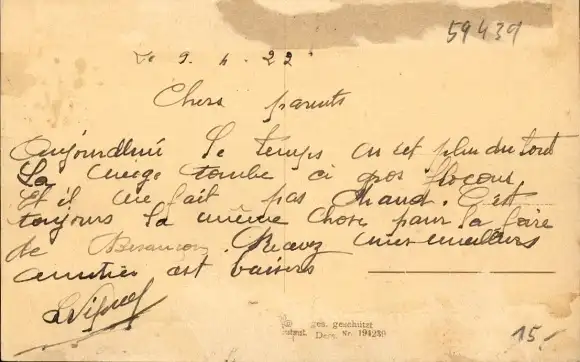 59439
Le 9. 4. 22
Chers parents
Aujourdhui le temps
La neige tombe ci gros flocons
Et il ne fait pas chaud. C'est
toujours la même chose pour la foire
de Besançon. Recevez mes meilleurs
amitiés et baisers
ges. geschützt
Dess. Nr. 194239
15.-